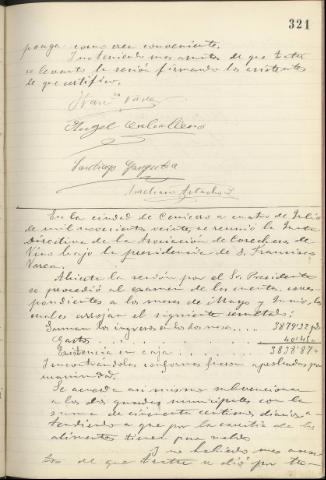 321
ponga como crea conveniente.
No teniendo mas asuntos de que tratar
se levanta la sesión firmando los asistentes
de que certifico.
Franco Varea
Angel Caballero
Santiago
En la ciudad de Cenicero a cuatro de Julio
de mil novecientos veinte, se reunió la Junta
directiva de la Asociación de Cosecheros de
Vino bajo la presidencia de D. Francisco
Varea.
Abierta la sesión por el Sr. Presidente
se procedió al examen de las cuentas, corres
pondientes a los meses de Mayo y Junio, las
cuales arrojan el siguiente resultado:
Suman los ingresos en los dos meses 3879'32 pts
Gastos 40'45
Existencia en caja 3838'87
Encontrándolas conformes fueron aprobadas por
unanimidad.
Se acuerda así mismo subvencionar
a los dos guardas municipales con la
suma de cincuenta centimos diarios a
tendiendo a que por la carestia de los
alimentos tienen poco sueldo.
Y no habiendo mas asun
tos de que tratar se dió por ter